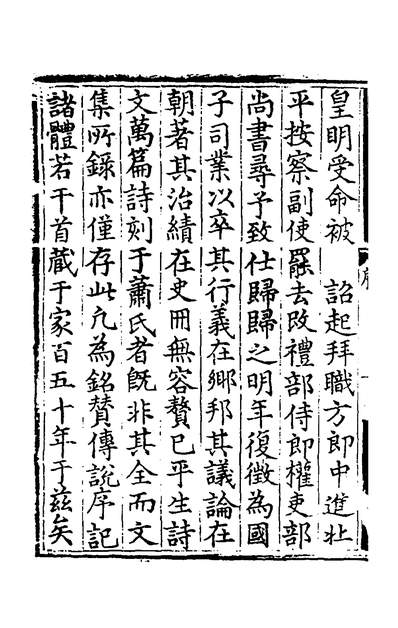 皇明受命被　詔起拜職方郎中進北
平按察副使罷去改禮部侍郎權吏部
尚書尋予致仕歸歸之明年復徵為國
子司業以卒其行義在鄉邦其議論在
朝著其治績在史冊無容贅已平生詩
文萬篇詩刻于蕭氏者既非其全而文
集所錄亦僅存此凡為銘贊傳說序記
諸體若干首藏于家百五十年于茲矣